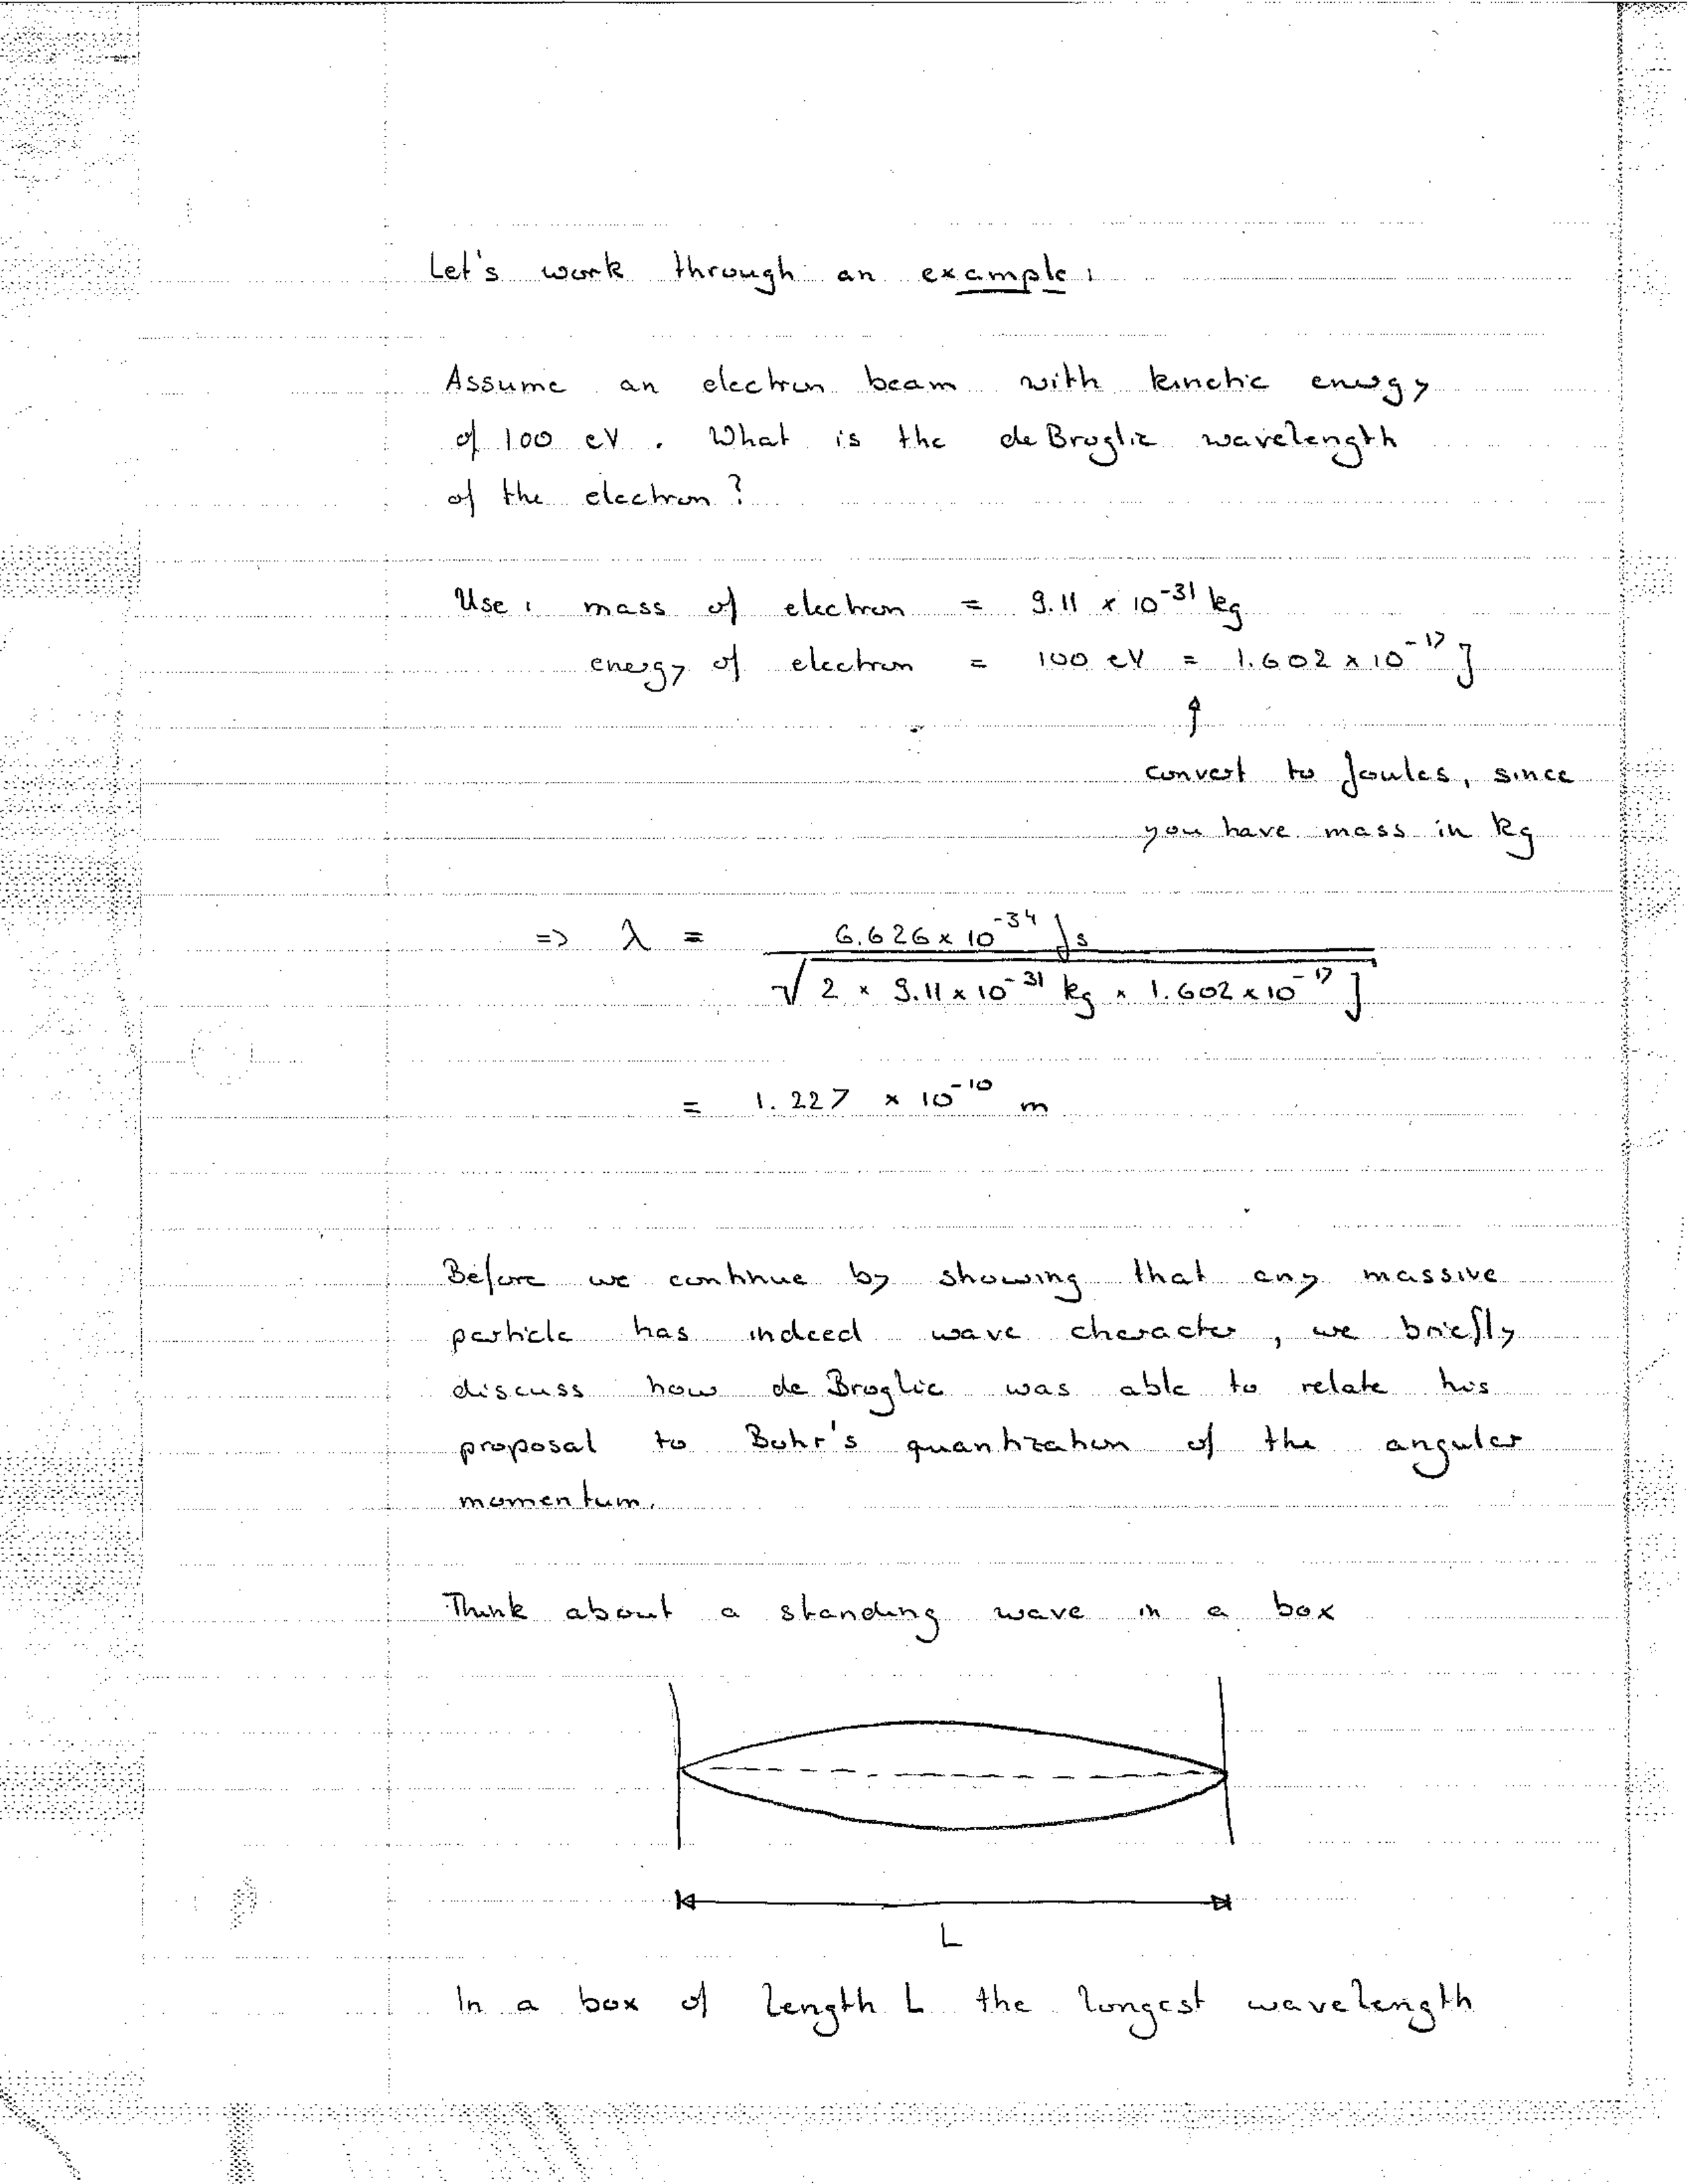 Let's work through an example:
Assume an electron beam with kinetic energy
of 100 eV. What is the de Broglie wavelength
of the electron?
Use: mass of electron = 9.11 × 10^-31 kg
energy of electron = 100 eV = 1.602 × 10^-17 J
↑
convert to Joules, since
you have mass in kg
=> λ = 6.626 × 10^-34 Js
√ 2 × 9.11 × 10^-31 kg × 1.602 × 10^-17 J
= 1.227 × 10^-10 m
Before we continue by showing that any massive
particle has indeed wave character, we briefly
discuss how de Broglie was able to relate his
proposal to Bohr's quantization of the angular
momentum.
Think about a standing wave in a box
L
In a box of length L the longest wavelength